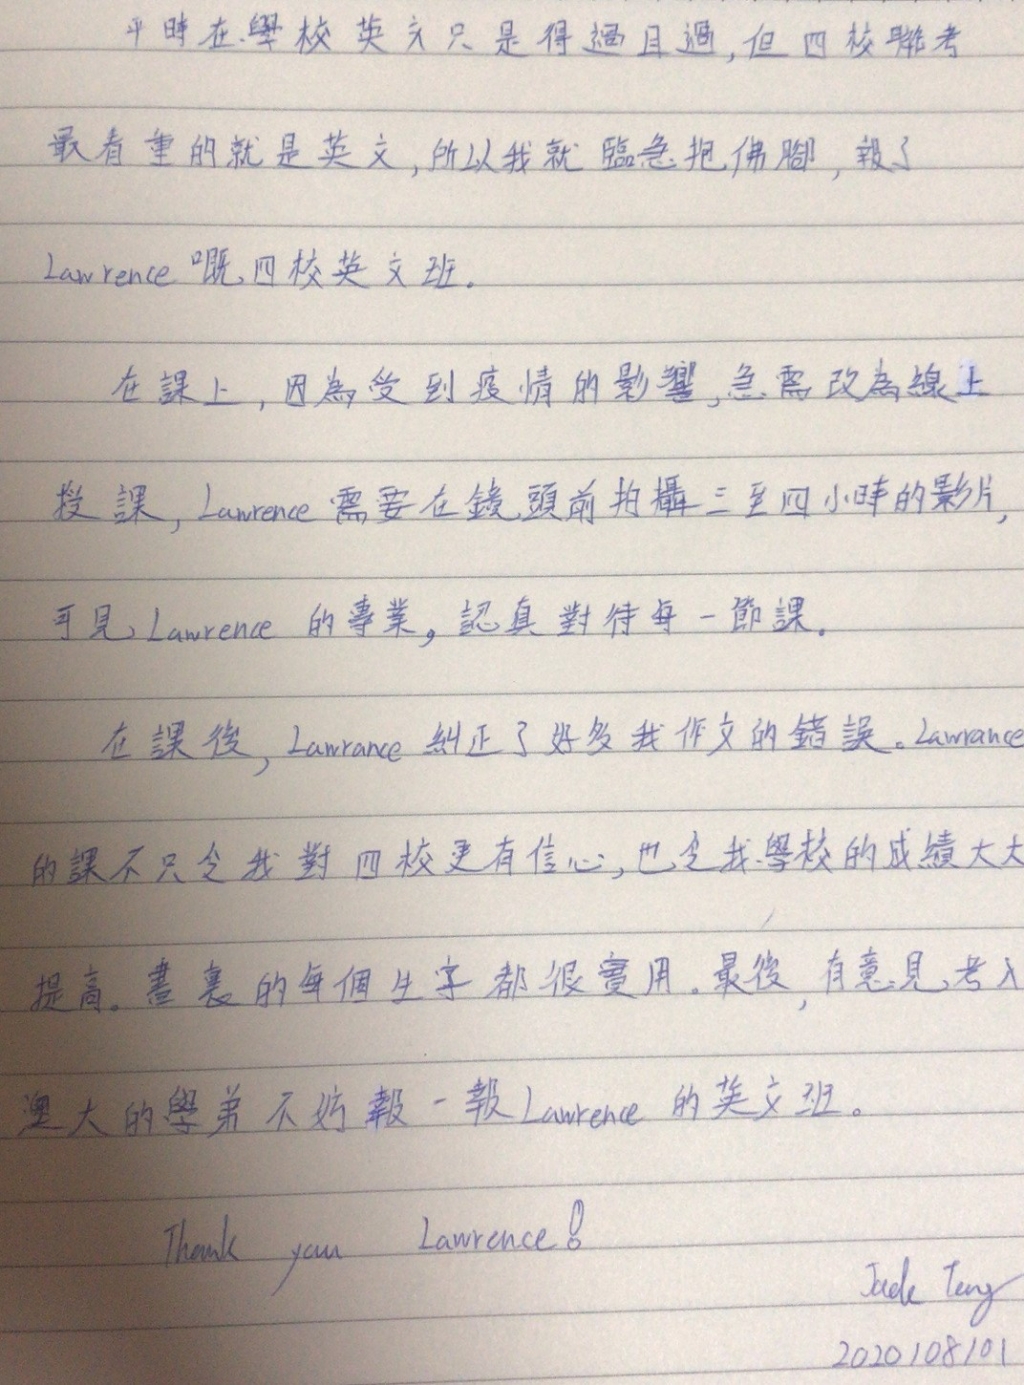 平時在學校英文只是得過且過,但四校聯考
最看重的就是英文,所以我就臨急抱佛腳,報了
Lawrence 嘅四校英文班.
在課上,因為受到疫情的影響,急需改為線上
授課,Lawrence 需要在鏡頭前拍攝三至四小時的影片,
可見 Lawrence 的專業,認真對待每一節課.
在課後,Lawrance 糾正了好多我作文的錯誤.Lawrance
的課不只令我對四校更有信心,也令我學校的成績大大
提高.書裏的每個生字都很實用.最後,有意見考入
澳大的學弟不妨報一報Lawrence 的英文班。
Thank you Lawrence!
2020/08/01